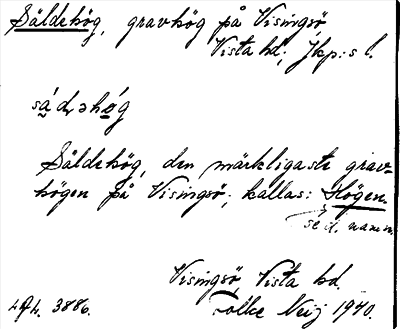 Säldehög, gravhög på Visingsö,
Vista hd, Jkp:s l.
Säldehög, den märkligaste grav-
högen på Visingsö, kallas: Högen.
se d. namn.
Visingsö, Vista hd.
3886. Folke Neij 1940.